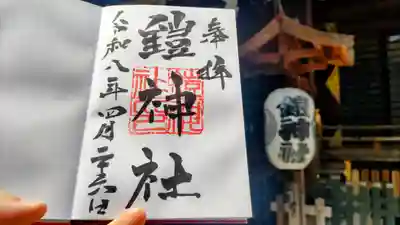 奉拝
鎧神社
令和八年四月二十六日
鎧神社